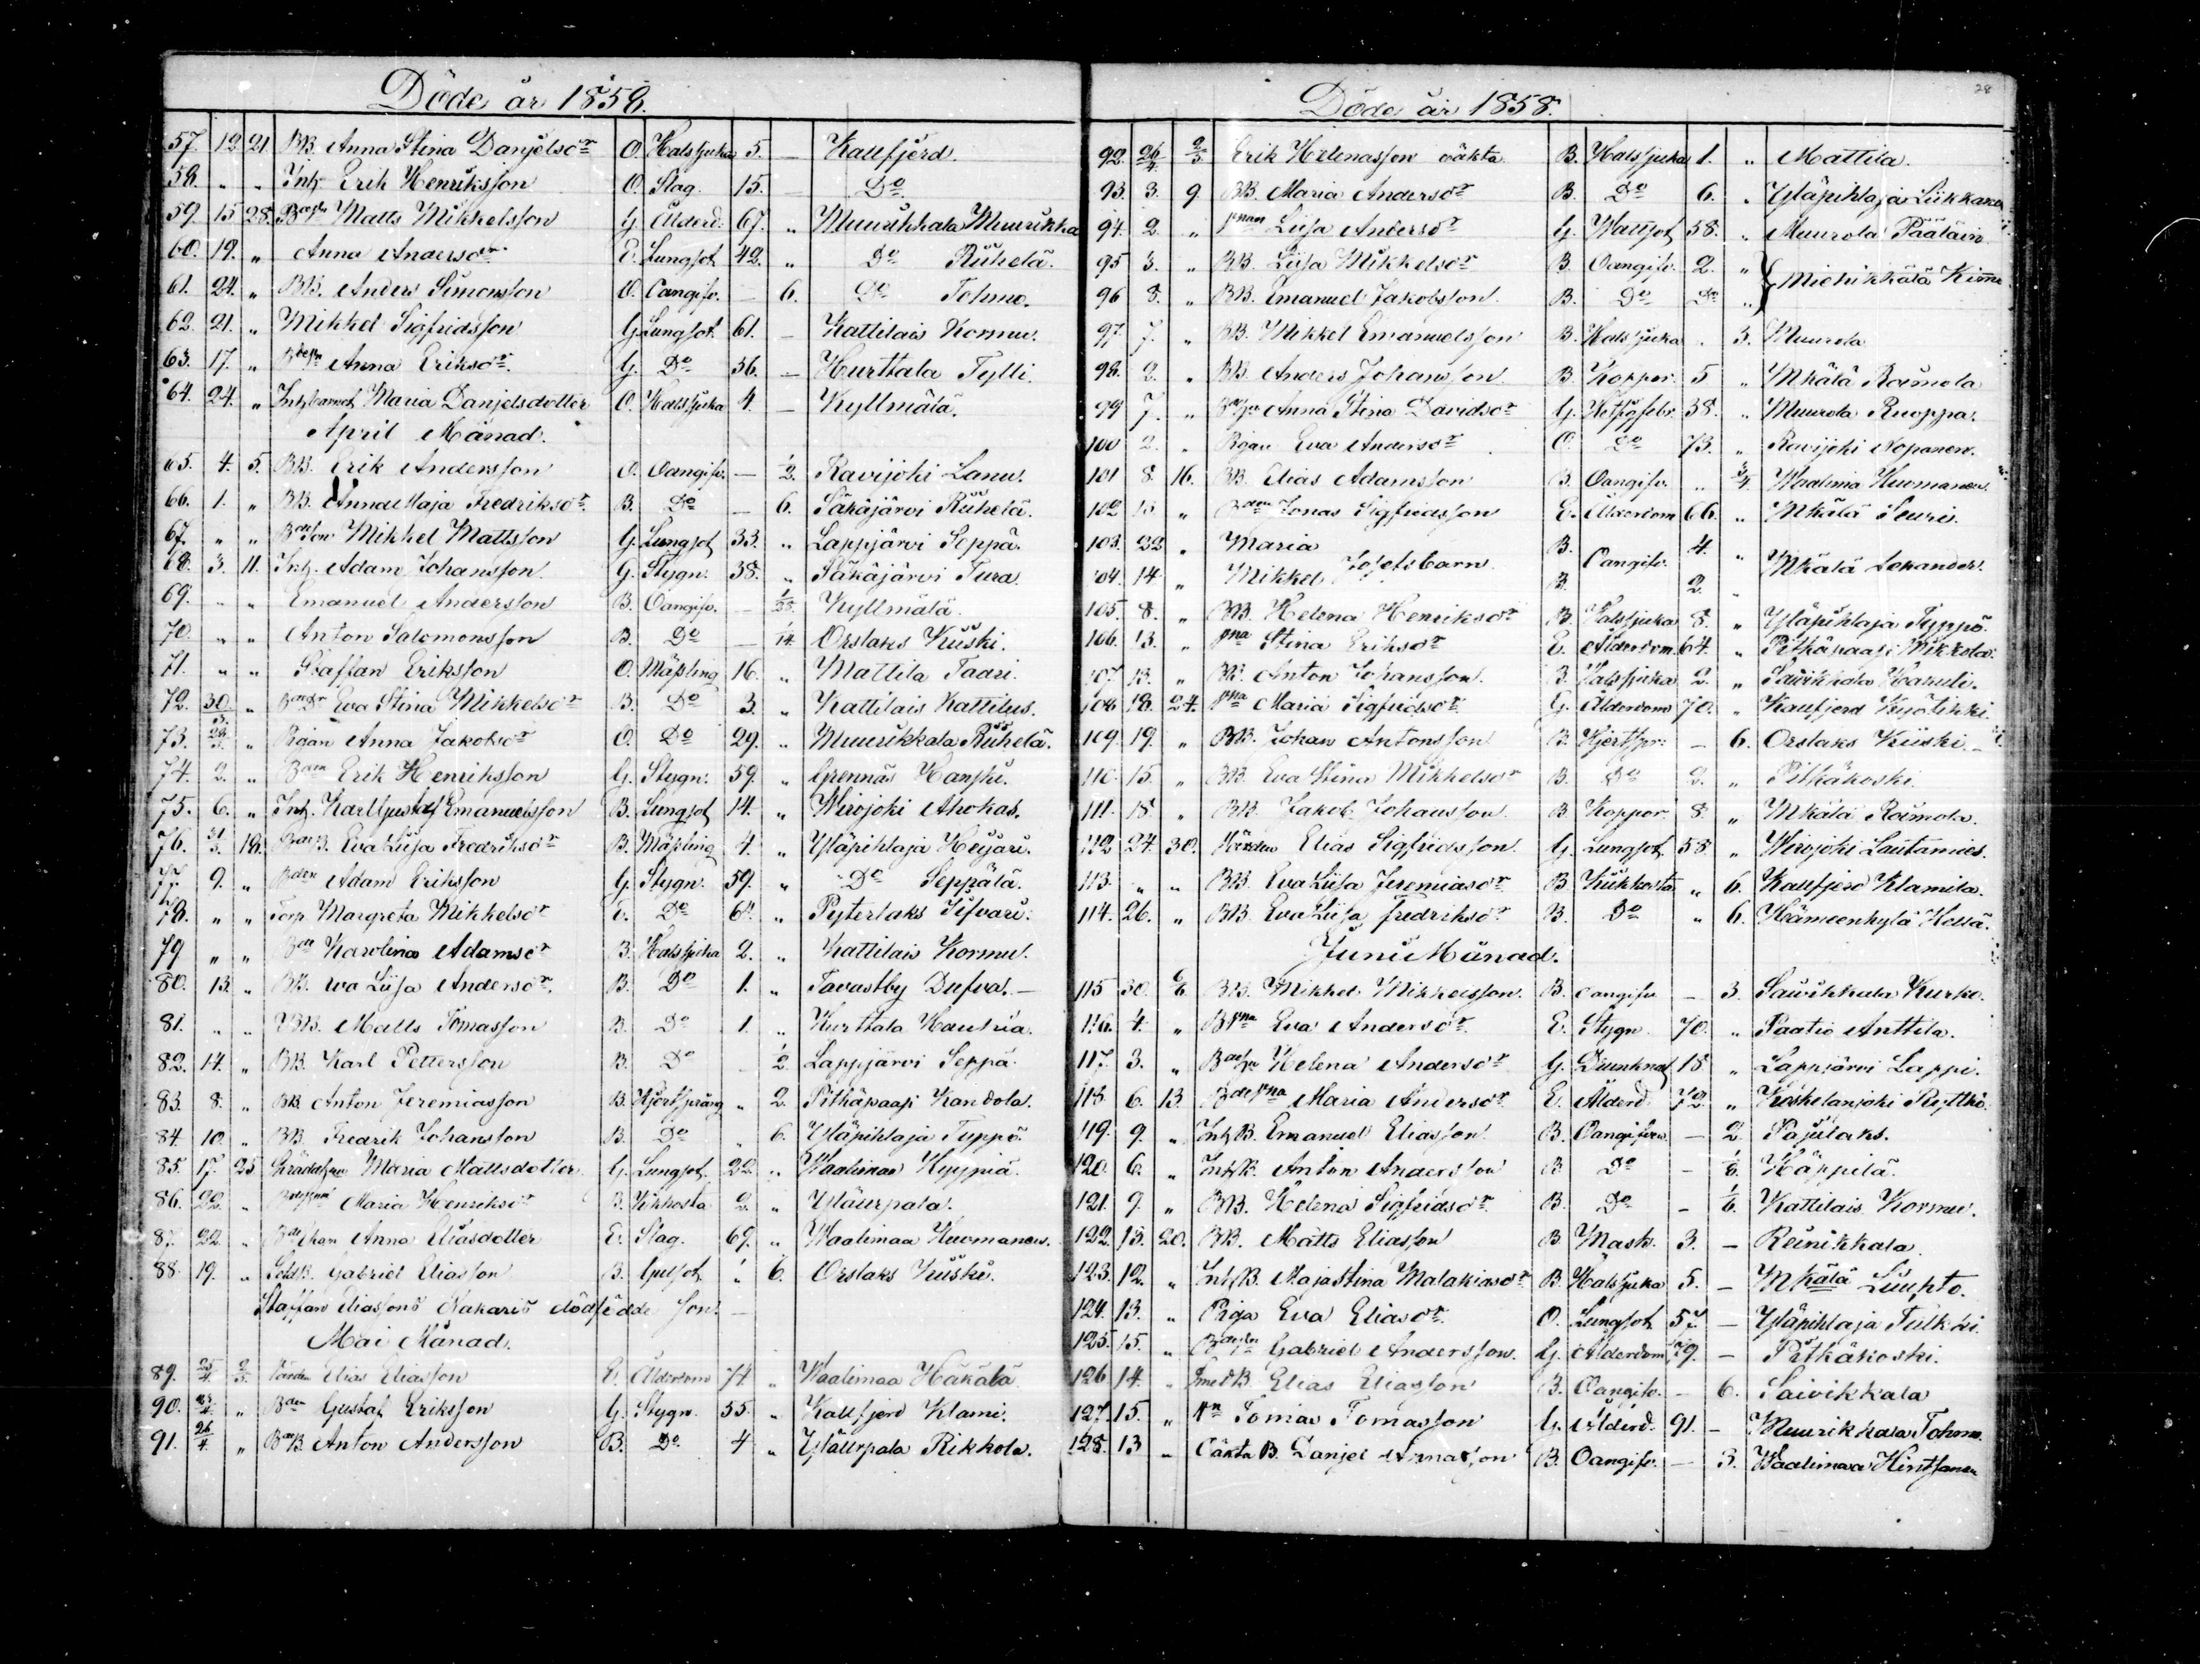 Döde år 1858.
57. 12 21 BB. Anna Stina Danjelsdr O. Halssjuka 5. — Kallfjerd.
58. „ „ Inh. Erik Henriksson O. Slag. 15. — Do
59. 15 28. Matts Mikkelsson G. Ålderd. 67. „ Muurikkala Muurikka
60. 19. „ Anna Andersdr E. Lungsot 42. „ Do Riihelä.
61. 24. „ BB. Anders Simonsson O. Oangifv. — 6. Do Tohmo.
62. 21. „ Mikkel Sigfridsson G. Lungsot. 61. — Kattilais Kormu.
63. 17. „ Anna Eriksdr G. Do 36. — Hurttala Tylli.
64. 24. „ Inh barnet Maria Danjelsdotter O. Halssjuka 4. — Kyllmälä.
April Månad.
65. 4. 5. BB. Erik Andersson O. Oangifv. — 1/2. Ravijoki Lanu.
66. 1. „ BB. Anna Maja Fredriksdr B. Do — 6. Säkäjärvi Riihelä.
67. „ „ Mikkel Mattsson G. Lungsot 33. „ Lappjärvi Seppä.
68. 3. 11. Inh. Adam Johansson G. Stygn. 38. „ Säkäjärvi Tura
69. „ „ Emanuel Andersson B. Oangifv. — Kyllmälä.
70. „ „ Anton Salomonsson B. Do — 1/14. Orslaks Kiiski.
71. „ „ Staffan Eriksson O. Mässling 16. „ Mattila Taari.
72. 30/3. „ Eva Stina Mikkelsdr B. Do 3. „ Kattilais Kattilus.
73. 28/3. „ Pigan Anna Jakobsdr O. Do 29. „ Muurikkala Riihelä.
74. 2. „ Bden Erik Henriksson G. Stygn. 59. „ Grennäs Hanski.
75. 6. „ Inh. Karl Gustaf Emanuelsson B. Lungsot 14. „ Wirojoki Ahokas.
76. 31/3. 12. Eva Liisa Fredriksdr B. Mässling 4. „ Yläpihlaja Heijari.
77. 9. „ Bden Adam Eriksson G. Stygn. 59. „ Do Seppälä.
78. „ „ Torp. Margreta Mikkelsdr E. Do 64. „ Pyterlaks
79 „ „ Karolina Adamsdr B. Halssjuka 2. „ Kattilais Kormu.
80. 13. „ BB. Eva Liisa Andersdr. B. Do 1. „ Tavastby Dufva. —
81. „ „ BB. Matts Tomasson B. Do 1. „ Hurttala Hautria.
82. 14. „ BB. Karl Pettersson B. Do 1/2. Lappjärvi Seppä.
83. 8. „ BB. Anton Jeremiasson B. Hjertsprång „ 2. Pitkäpaasi Kandola.
84. 10. „ BB. Fredrik Johansson B. Do „ 6. Yläpihlaja Typpö.
85. 17. 25 Maria Mattsdotter G. Lungsot. 22. „ Waalimaa Kyyniä.
86. 22. „ Maria Henriksdr B. Kikhosta 2. „ Yläurpala.
87. 22. „ Anna Eliasdotter E. Slag. 69. „ Waalimaa Huomanen.
88. 19. „ Sold B. Gabriel Eliasson B. Gulsot „ 6. Orslaks Kiiski.
Staffan Eliassons Nakaris dödfödde son. —
Mai Månad.
89. 25/4 2/5. Elias Eliasson E. Ålderdom 74 „ Waalimaa Häkälä
90. „ Bden Gustaf Eriksson G. Stygn. 55. „ Kallfjerd Klami.
91. 26/4. „ Anton Andersson B. Do 4 „ Yläurpala Rikkola.
28
Döde år 1858.
92. 26/4. 2/5. Erik Helenasson oäkta B. Halssjuka 1. „ Mattila.
93. 3. 9. BB. Maria Andersdr B. Do 6. „ Yläpihlaja Liikkanen
94. 2. „ Liisa Andersdr G. Wattsot 58. „ Muurola Pääläin
95 3. „ BB. Liisa Mikkelsdr B. Oangifv. 2. „ } Miehikkälä Kimu
96 8. „ BB. Emanuel Jakobsson. B. Do Do „
97. 7. „ BB. Mikkel Emanuelsson B. Halssjuka „ 3. Muurola
98. 2. „ BB. Anders Johansson B. Koppor. 5 „ Mkälä Raimola
99 7. „ Anna Stina Davidsdr G. 38. „ Muurola Ruoppa.
100 2. „ Pigan Eva Andersdr O. Do 73. „ Ravijoki Nopanen.
101 8. 16. BB. Elias Adamsson B. Oangifv. „ 3/4. Waalima Huomanen.
102 15 „ Bden Jonas Sigfridsson E. Ålderdom 66. „ Mkälä Suuri.
103. 22 „ Maria B. Oangifv. 4. „ Mkälä Lekander.
104. 14. „ Mikkel Josefs barn. B. 2. „
105. 8. „ BB. Helena Henriksdr B. Halssjuka 8. „ Yläpihlaja Typpö.
106. 13. „ Stina Eriksdr E. Ålderdom. 64. „ Pitkäpaasi Mikkola.
107. 13. „ BB. Anton Johansson. B. Halssjuka 2. „ Saivikkala
108. 18. 24. Maria Sigfridsdr G. Ålderdom 70. „ Kallfjerd
109. 19. „ BB. Johan Antonsson B. Hjertspr. — 6. Orslaks Kiiski. —
110. 15. „ BB. Eva Stina Mikkelsdr B. Do 2. „ Pitkäkoski.
111. 18. „ BB. Jakob Johansson B. Koppor 8. „ Mkälä Raimola.
112 24. 30. Elias Sigfridsson. G. Lungsot. 58. „ Wirojoki Lautamies.
113. „ „ BB. Eva Liisa Jeremiasdr B. Kikhosta „ 6. Kallfjerd Klamila.
114. 26. „ BB. Eva Liisa Fredriksdr B. Do „ 6. Hämeenkylä
Junii Månad.
115 30. 6/6. BB. Mikkel Mikkelsson. B. Oangifv. — 3. Saivikkala Kurko.
116. 4. „ Eva Andersdr. E. Stygn 70. „ Paatio Anttila.
117. 3. „ Helena Andersdr G. Drunknat 18 „ Lappjärvi Lappi.
118. 6. 13. Maria Andersdr E. Ålderd. 72. „
119. 9. „ Inh B. Emanuel Eliasson B. Oangifven — 2. Pajulaks.
120. 6. „ Inh B. Anton Andersson B Do — 1/6. Häppilä.
121. 9. „ BB. Helena Sigfridsdr. B. Do — 1/6. Kattilais Kormu.
122. 13. 20. BB. Matts Eliasson B Mask. 3. — Reinikkala.
123. 12. „ Inh B. Maja Stina Malakiasdr B. Halssjuka 5. — Mkälä
124. 13. „ Piga Eva Eliasdr. O. Lungsot. 57 — Yläpihlaja Tulkki.
125. 15. „ Gabriel Andersson. G. Ålderdom 79. — Pitkäkoski.
126 14. „ Elias Eliasson B. Oangifv. — 6. Saivikkala
127. 15. „ Tomas Tomasson G. Ålderd. 91. — Muurikkala Tohmo.
128. 13 „ Oäkta B. Danjel Annasson B. Oangifv. — 3. Waalimaa Hintsanen